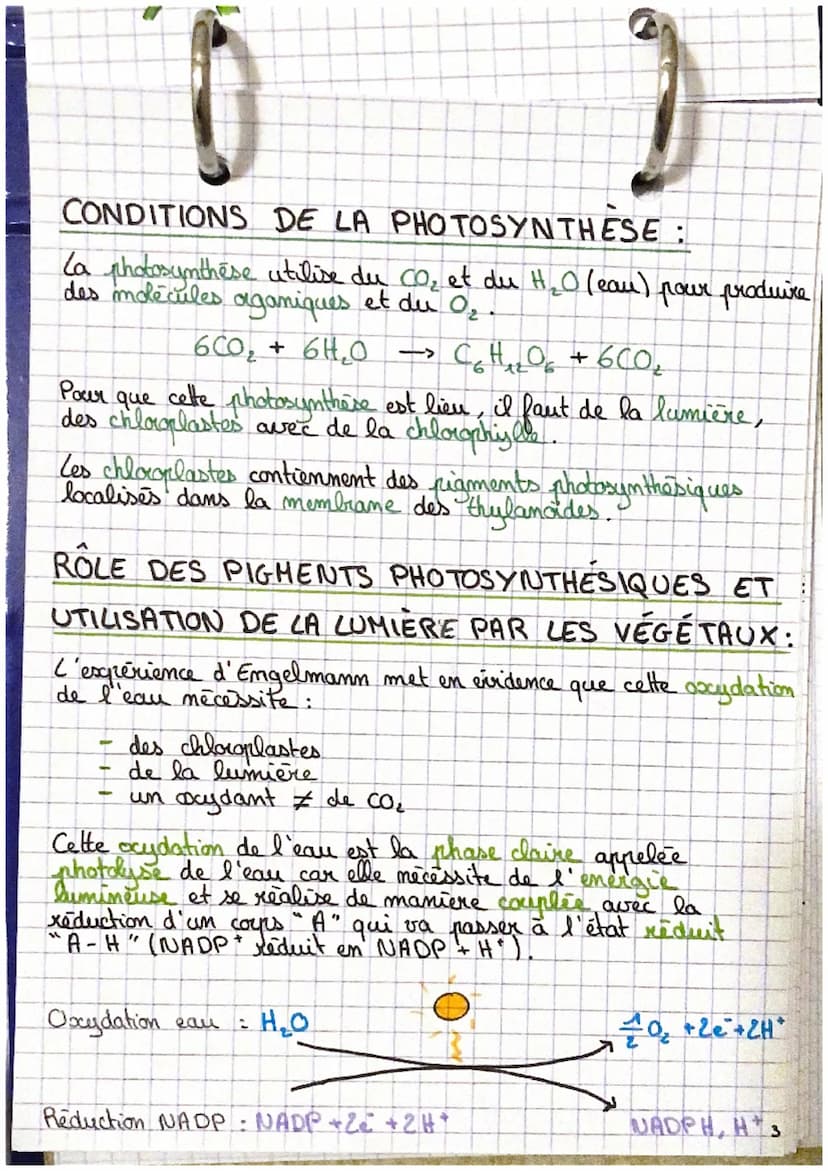 CONDITIONS DE LA PHOTOSYNTHÈSE :
La photosynthèse utilise du CO₂ et du H₂O (eau) pour produire
des molécules organiques et du O₂.
6CO₂ + 6H₂O → C₆H₁₂O₆ + 6CO₂
Pour que cette photosynthèse est lieu, il faut de la lumière,
des chloroplastes avec de la chlorophylle.
Les chloroplastes contiennent des pigments photosynthésiques
localisés dans la membrane des thylanoïdes.
RÔLE DES PIGMENTS PHOTOSYNTHÉSIQUES ET :
UTILISATION DE LA LUMIÈRE PAR LES VÉGÉTAUX :
L'expérience d'Engelmann met en évidence que cette oxydation
de l'eau nécessite :
- des chloroplastes
- de la lumière
- un oxydant ≠ de CO₂
Cette oxydation de l'eau est la phase claire appelée
photolyse de l'eau car elle nécessite de l'énergie
lumineuse et se réalise de manière couplée avec la
réduction d'un corps "A" qui va passer à l'état réduit
"A-H" (NADP⁺ réduit en NADP + H⁺).
Oxydation eau : H₂O
½O₂ + 2e⁻ + 2H⁺
Réduction NADP : NADP + 2e⁻ + 2H⁺
NADPH, H⁺
3